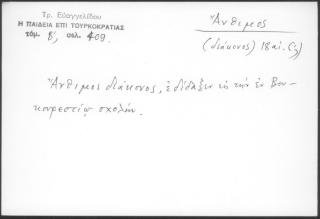 Τρ. Εὐαγγελίδου
Η ΠΑΙΔΕΙΑ ΕΠΙ ΤΟΥΡΚΟΚΡΑΤΙΑΣ
τόμ. Β', σελ. 409.
Ἄνθιμος
(διάκονος) 18 αἰ.
Ἄνθιμος διάκονος, ἐδίδαξεν εἰς τὴν ἐν Βου-
κουρεστίῳ σχολήν.